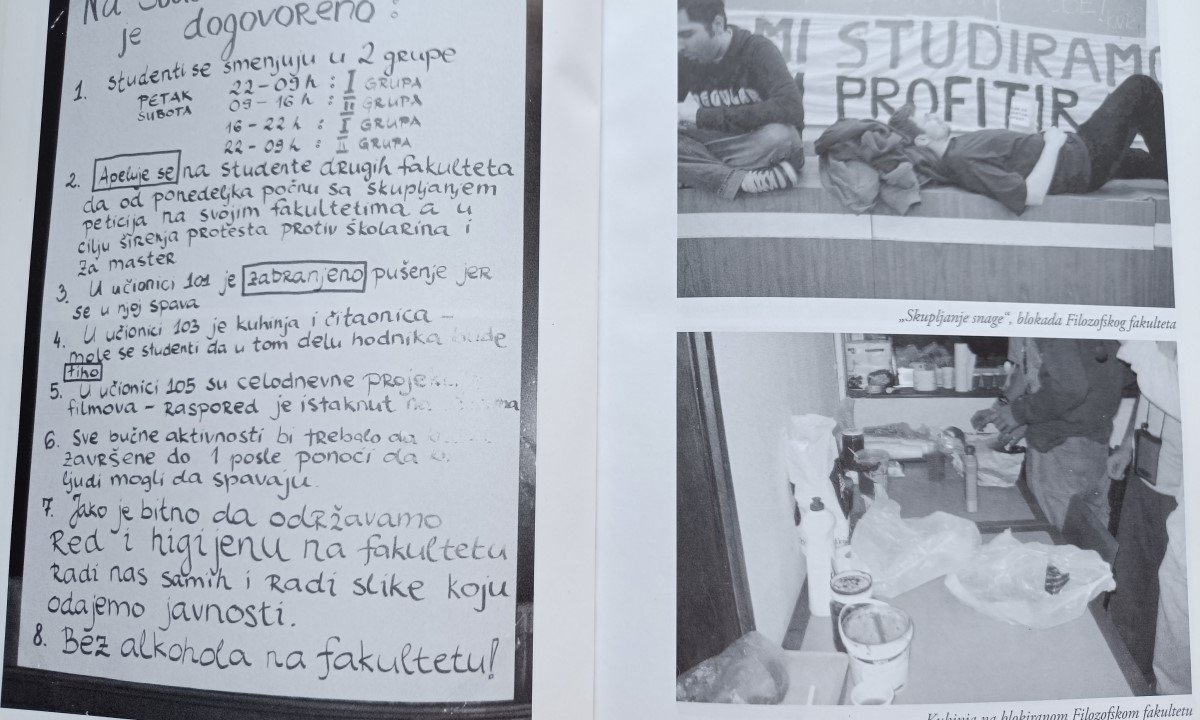 Na
je dogovoreno:
1. studenti se smenjuju u 2 grupe
PETAK 22-09 h : I GRUPA
SUBOTA 09-16 h : II GRUPA
16-22 h : I GRUPA
22-09 h : II GRUPA
2. Apeluje se na studente drugih fakulteta
da od ponedeljka počnu sa skupljanjem
peticija na svojim fakultetima a u
cilju širenja protesta protiv školarina i
za master
3. U učionici 101 je zabranjeno pušenje jer
se u njoj spava
4. U učionici 103 je kuhinja i čitaonica -
mole se studenti da u tom delu hodnika bude
tiho
5. U učionici 105 su celodnevne
filmova - raspored je istaknut na
6. Sve bučne aktivnosti bi trebalo da
završene do 1 posle ponoći da
ljudi mogli da spavaju.
7. Jako je bitno da održavamo
Red i higijenu na fakultetu
Radi nas samih i Radi slike koju
odajemo javnosti.
8. Bez alkohola na fakultetu!
MI STUDIRAMO
PROFITIR
„Skupljanje snage“, blokada Filozofskog fakulteta
Kuhinja na blokiranom Filozofskom fakultetu